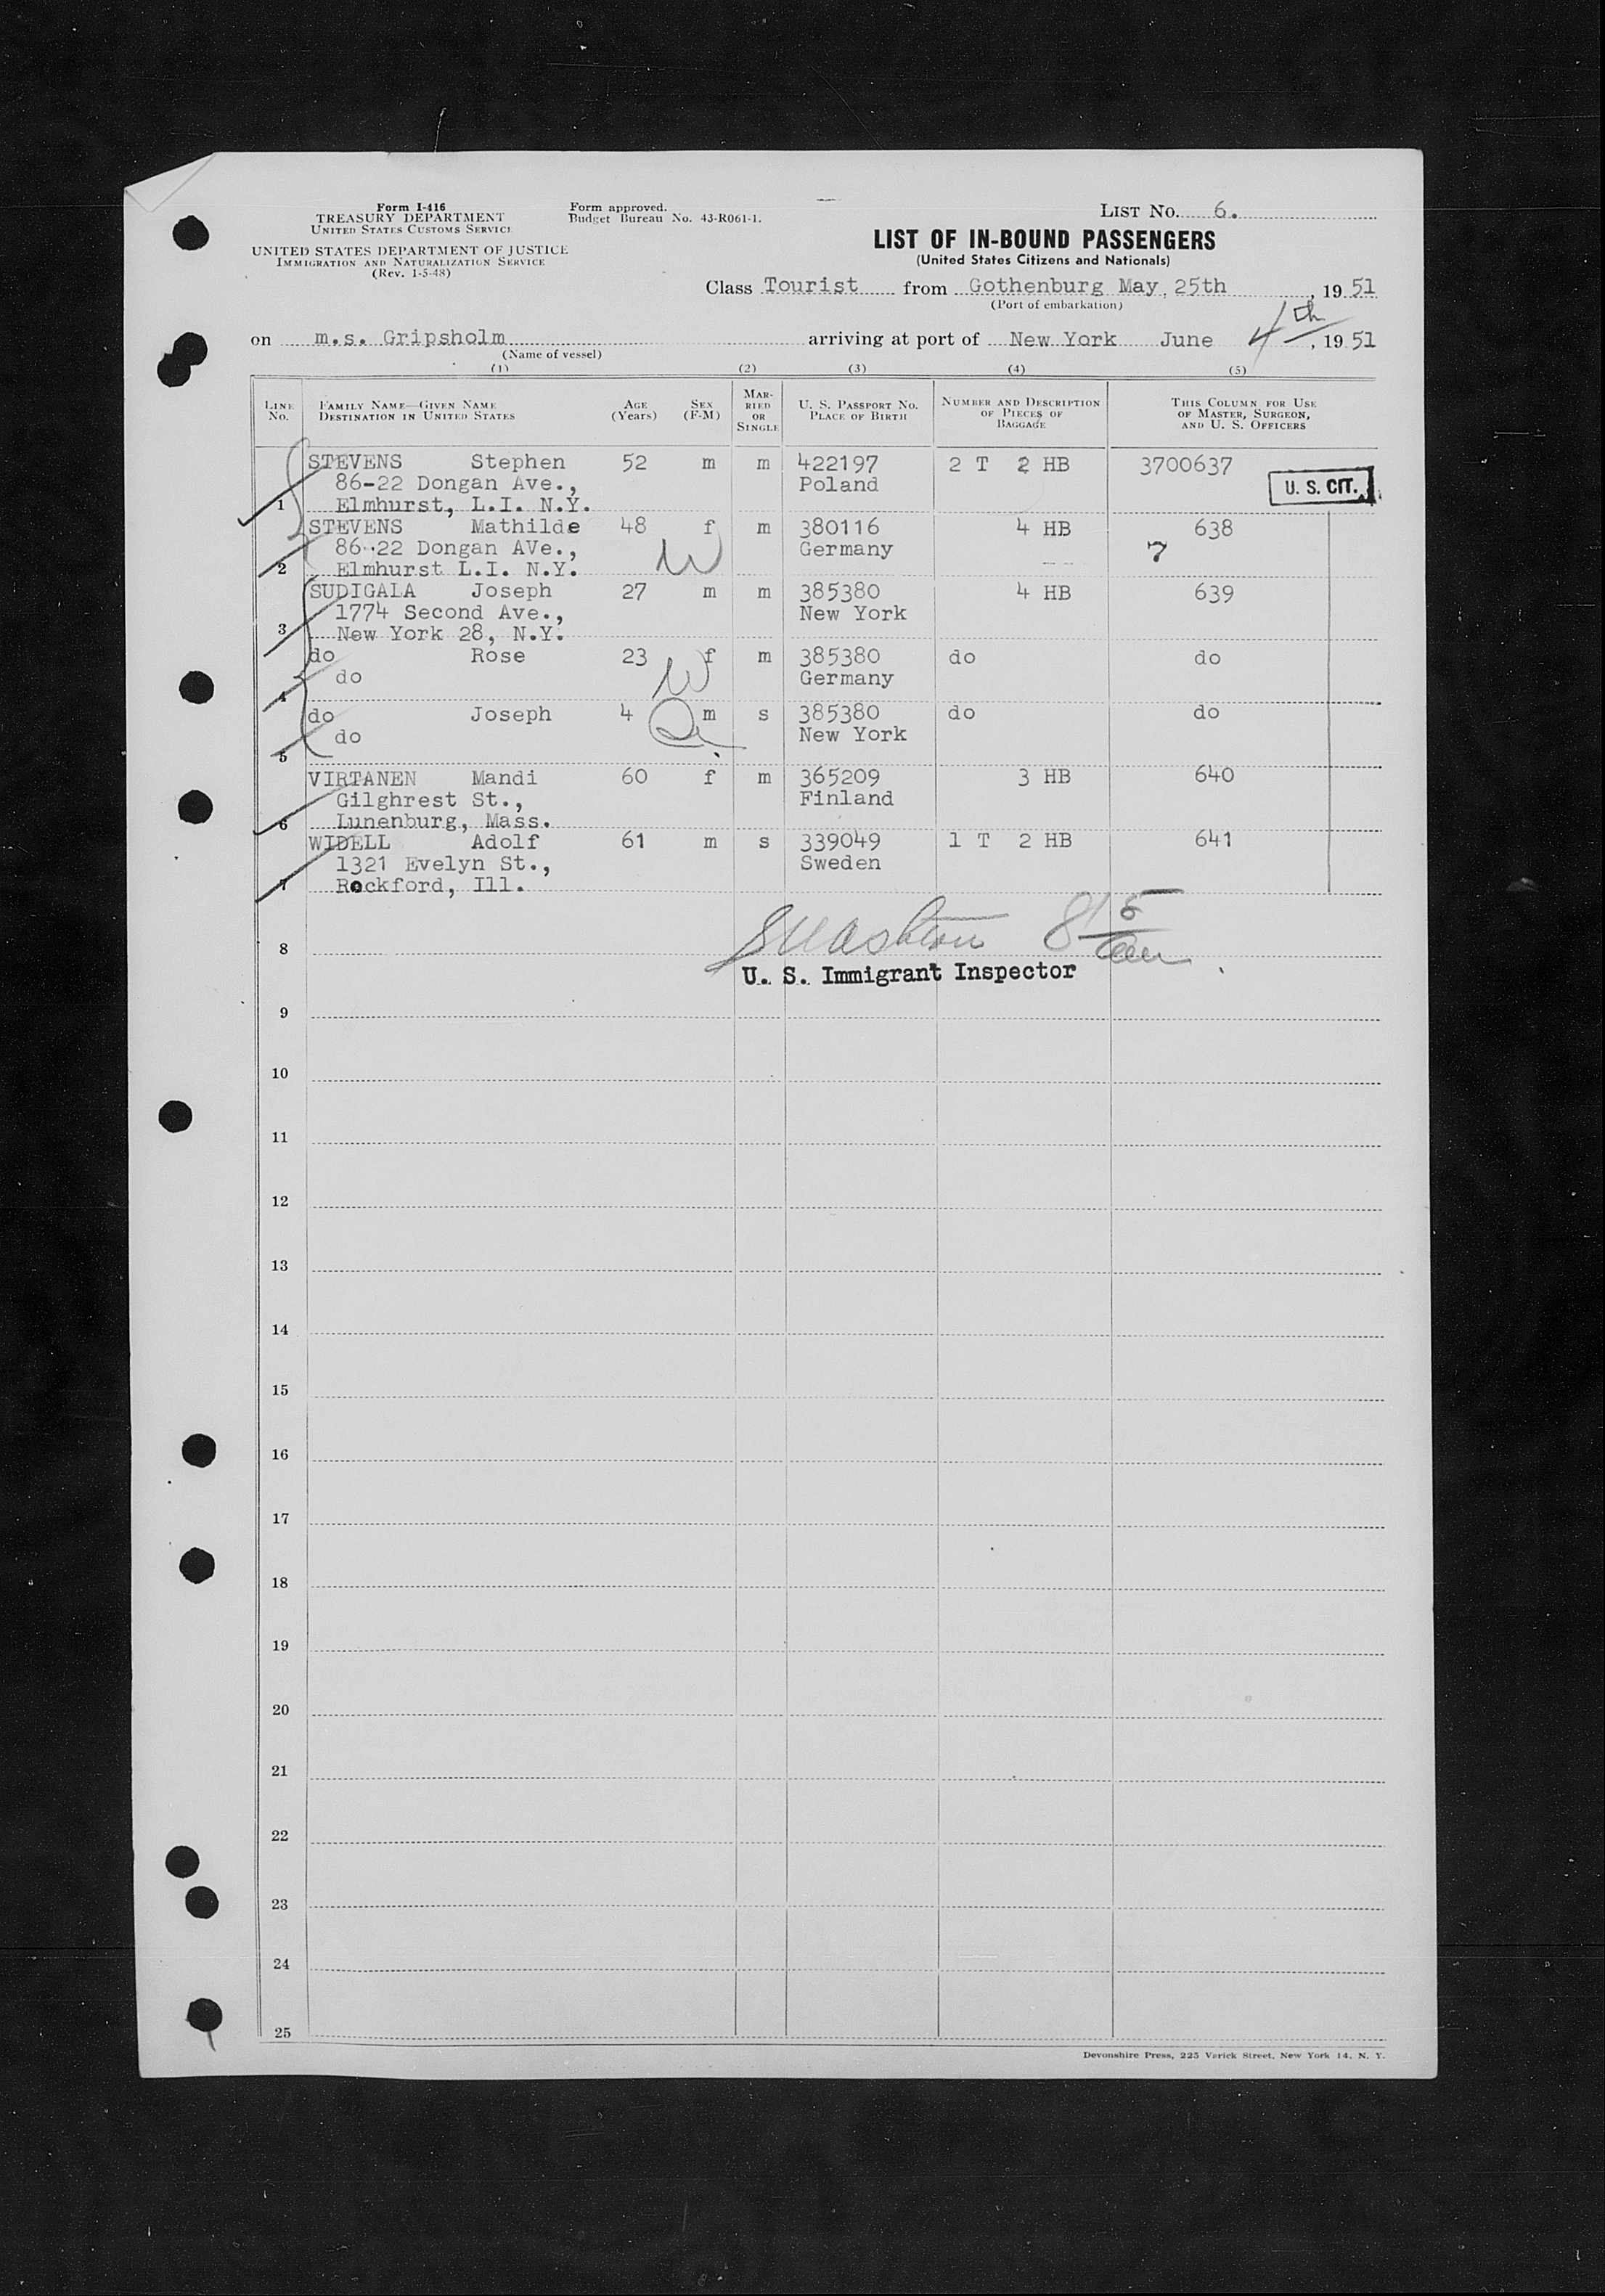 Form I-416
TREASURY DEPARTMENT
UNITED STATES CUSTOMS SERVICE
UNITED STATES DEPARTMENT OF JUSTICE
IMMIGRATION AND NATURALIZATION SERVICE
(Rev. 1-5-48)
Form approved.
Budget Bureau No. 43-R061-1.
LIST No. 6.
LIST OF IN-BOUND PASSENGERS
(United States Citizens and Nationals)
Class Tourist from Gothenburg May, 25th, 19 51
(Port of embarkation)
on m.s. Gripsholm arriving at port of New York June 4th, 19 51
(Name of vessel)
(1) (2) (3) (4) (5)
LINE No.
FAMILY NAME—GIVEN NAME
DESTINATION IN UNITED STATES
AGE
(Years)
SEX
(F-M)
MAR-
RIED
OR
SINGLE
U. S. PASSPORT No.
PLACE OF BIRTH
NUMBER AND DESCRIPTION
OF PIECES OF
BAGGAGE
THIS COLUMN FOR USE
OF MASTER, SURGEON,
AND U. S. OFFICERS
STEVENS Stephen 52 m m 422197 2 T 2 HB 3700637
86-22 Dongan Ave., Poland U. S. CIT.
1 Elmhurst, L.I. N.Y.
STEVENS Mathilde 48 f m 380116 4 HB 638
86-22 Dongan AVe., W Germany 7
2 Elmhurst L.I. N.Y.
SUDIGALA Joseph 27 m m 385380 4 HB 639
1774 Second Ave., New York
3 New York 28, N.Y.
do Rose 23 f m 385380 do do
4 do W Germany
do Joseph 4 m s 385380 do do
5 do New York
VIRTANEN Mandi 60 f m 365209 3 HB 640
Gilghrest St., Finland
6 Lunenburg, Mass.
WIDELL Adolf 61 m s 339049 1 T 2 HB 641
1321 Evelyn St., Sweden
7 Rockford, Ill.
8
U. S. Immigrant Inspector
9
10
11
12
13
14
15
16
17
18
19
20
21
22
23
24
25
Devonshire Press, 225 Varick Street, New York 14, N. Y.